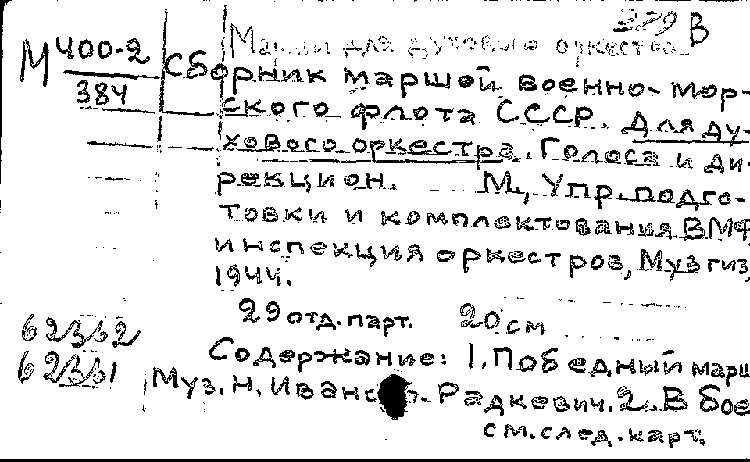 329 В
Марши для духового оркестра
М 400-2 Сборник маршей военно-мор-
384
ского флота СССР. Для ду-
хового оркестра. Голоса и ди-
рекцион. М., Упр. подго-
товки и комплектования ВМФ,
инспекция оркестров, Музгиз,
1944.
29 отд. парт. 20 см
62332
Содержание: 1. Победный марш
62331
Муз. Н. Иванов-Радкевич. 2. В бое
см. след. карт.